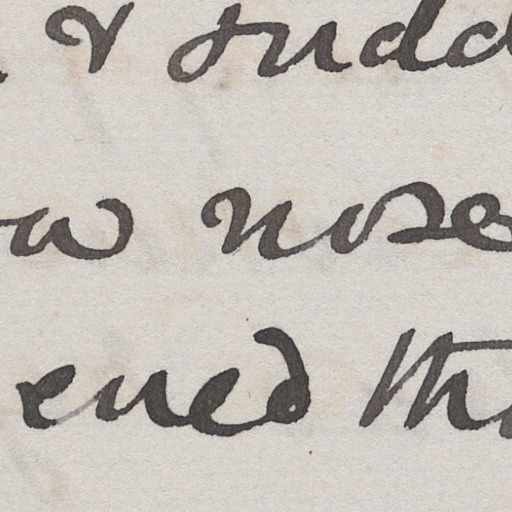 & sudd
ow nose
ened th